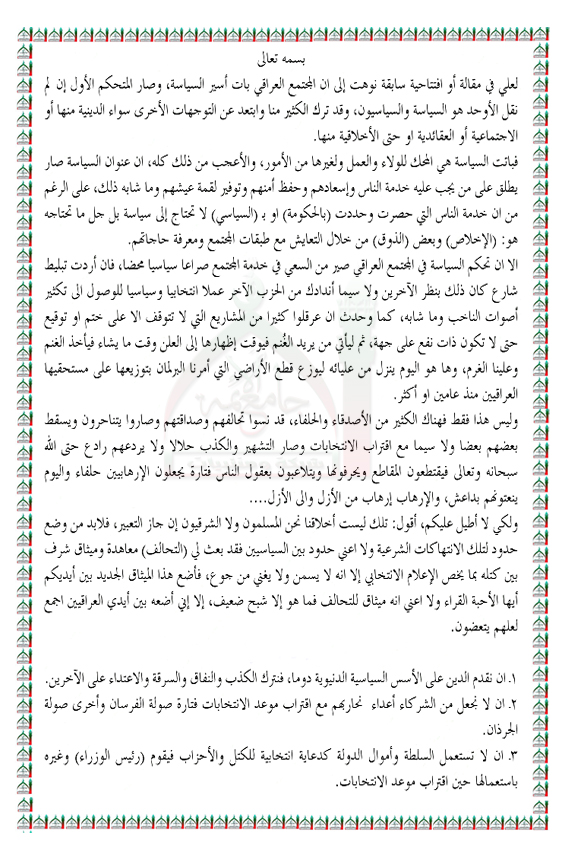 بسمه تعالى
لعلي في مقالة أو افتتاحية سابقة نوهت إلى ان المجتمع العراقي بات أسير السياسة، وصار المتحكم الأول إن لم
نقل الأوحد هو السياسة والسياسيون، وقد ترك الكثير منا وابتعد عن التوجهات الأخرى سواء الدينية منها أو
الاجتماعية أو العقائدية او حتى الأخلاقية منها.
فباتت السياسة هي المحك للولاء والعمل ولغيرها من الأمور، والأعجب من ذلك كله، ان عنوان السياسة صار
يطلق على من يجب عليه خدمة الناس وإسعادهم وحفظ أمنهم وتوفير لقمة عيشهم وما شابه ذلك، على الرغم
من ان خدمة الناس التي حصرت وحددت (بالحكومة) او بـ (السياسي) لا تحتاج إلى سياسة بل جل ما تحتاجه
هو: (الإخلاص) وبعض (الذوق) من خلال التعايش مع طبقات المجتمع ومعرفة حاجاتهم.
الا ان تحكم السياسة في المجتمع العراقي صير من السعي في خدمة المجتمع صراعا سياسيا محضا، فان أردت تبليط
شارع كان ذلك بنظر الآخرين ولا سيما أندادك من الحزب الآخر عملا انتخابيا وسياسيا للوصول الى تكثير
أصوات الناخب وما شابه، كما وحدث ان عرقلوا كثيرا من المشاريع التي لا تتوقف الا على ختم او توقيع
حتى لا تكون ذات نفع على جهة، ثم ليأتي من يريد الغُنم فيوقت إظهارها إلى العلن وقت ما يشاء فيأخذ الغنم
وعلينا الغرم، وها هو اليوم ينزل من عليائه ليوزع قطع الأراضي التي أمرنا البرلمان بتوزيعها على مستحقيها
العراقيين منذ عامين او أكثر.
وليس هذا فقط فهناك الكثير من الأصدقاء والحلفاء، قد نسوا تحالفهم وصداقتهم وصاروا يتناحرون ويسقط
بعضهم بعضا ولا سيما مع اقتراب الانتخابات وصار التشهير والكذب حلالا ولا يردعهم رادع حتى الله
سبحانه وتعالى فيقتطعون المقاطع ويحرفونها ويتلاعبون بعقول الناس فتارة يجعلون الإرهابيين حلفاء واليوم
ينعتونهم بداعش، والإرهاب إرهاب من الأزل والى الأزل....
ولكي لا أطيل عليكم، أقول: تلك ليست أخلاقنا نحن المسلمون ولا الشرقيون إن جاز التعبير، فلابد من وضع
حدود لتلك الانتهاكات الشرعية ولا اعني حدود بين السياسيين فقد بعث لي (التحالف) معاهدة وميثاق شرف
بين كتله بما يخص الإعلام الانتخابي إلا انه لا يسمن ولا يغني من جوع، فأضع هذا الميثاق الجديد بين أيديكم
أيها الأحبة القراء ولا اعني انه ميثاق للتحالف فما هو إلا شبح ضعيف، إلا إني أضعه بين أيدي العراقيين اجمع
لعلهم يتعضون.
١. ان نقدم الدين على الأسس السياسية الدنيوية دوما، فنترك الكذب والنفاق والسرقة والاعتداء على الآخرين.
٢. ان لا نجعل من الشركاء أعداء نحاربهم مع اقتراب موعد الانتخابات فتارة صولة الفرسان وأخرى صولة
الجرذان.
٣. ان لا تستعمل السلطة وأموال الدولة كدعاية انتخابية للكتل والأحزاب فيقوم (رئيس الوزراء) وغيره
باستعمالها حين اقتراب موعد الانتخابات.